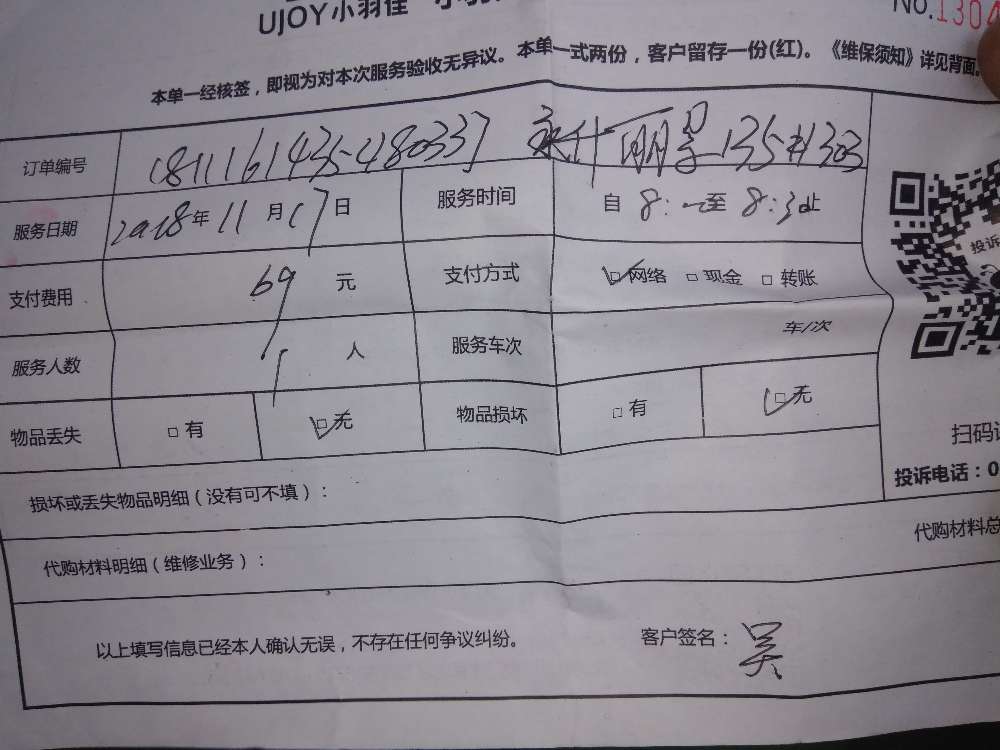 UJOY小羽佳
No.1304
本单一经核签，即视为对本次服务验收无异议。本单一式两份，客户留存一份(红)。《维保须知》详见背面。
订单编号 1811161435480337 永升丽景135#303
服务日期 2018年11月17日 服务时间 自 8:00至 8:30止
支付费用 69 元 支付方式 □网络 □现金 □转账
服务人数 1 人 服务车次 车/次
物品丢失 □有 □无 物品损坏 □有 □无
投诉
扫码
投诉电话：0
损坏或丢失物品明细（没有可不填）：
代购材料明细（维修业务）： 代购材料总
以上填写信息已经本人确认无误，不存在任何争议纠纷。 客户签名：吴